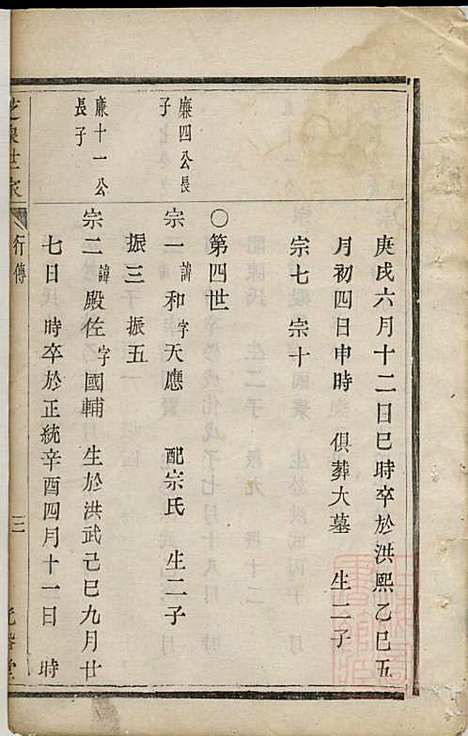 庚戌六月十二日巳時卒於洪熙乙巳五
月初四日申時 俱葬大墓 生二子
宗七 宗十
〇第四世
廉四公長
子
宗一諱和字天應 配宗氏 生二子
振三 振五
廉十一公
長子
宗二諱殿佐字國輔 生於洪武己巳九月廿
七日 時卒於正統辛酉四月十一日 時
世家
行傳
三
堂